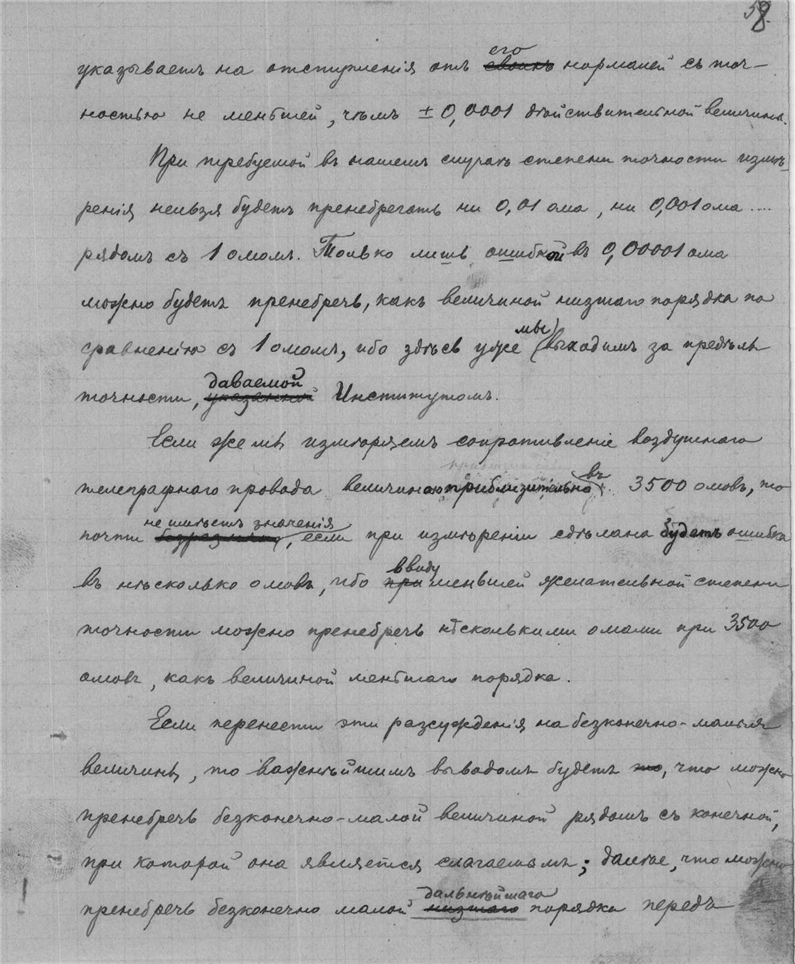 58.
указываетъ на отступленія отъ его своихъ нормалей съ точ-
ностью не меньшей, чѣмъ ± 0,0001 дѣйствительной величины.
При требуемой въ нашемъ случаѣ степени точности измѣ-
ренія нельзя будетъ пренебрегать ни 0,01 ома, ни 0,001 ома ....
рядомъ съ 1 омомъ. Только лишь ошибкой въ 0,00001 ома
можно будетъ пренебречь, какъ величиной низшаго порядка по
сравненію съ 1 омомъ, ибо здѣсь уже мы выходимъ за предѣлы
точности, даваемой указанной Институтомъ.
Если же мы измѣряемъ сопротивленіе воздушнаго
телеграфнаго провода величиною приблизительно въ 3500 омовъ, то
почти не имѣетъ значенія безразлично, если при измѣреніи сдѣлана будетъ ошибка
въ нѣсколько омовъ, ибо ввиду при меньшей желательной степени
точности можно пренебречь нѣсколькими омами при 3500
омовъ, какъ величиной меньшаго порядка.
Если перенести эти разсужденія на безконечно-малыя
величины, то важнѣйшимъ выводомъ будетъ то, что можно
пренебречь безконечно-малой величиной рядомъ съ конечной,
при которой она является слагаемымъ; далѣе, что можно
пренебречь безконечно малой дальнѣйшаго низшаго порядка передъ